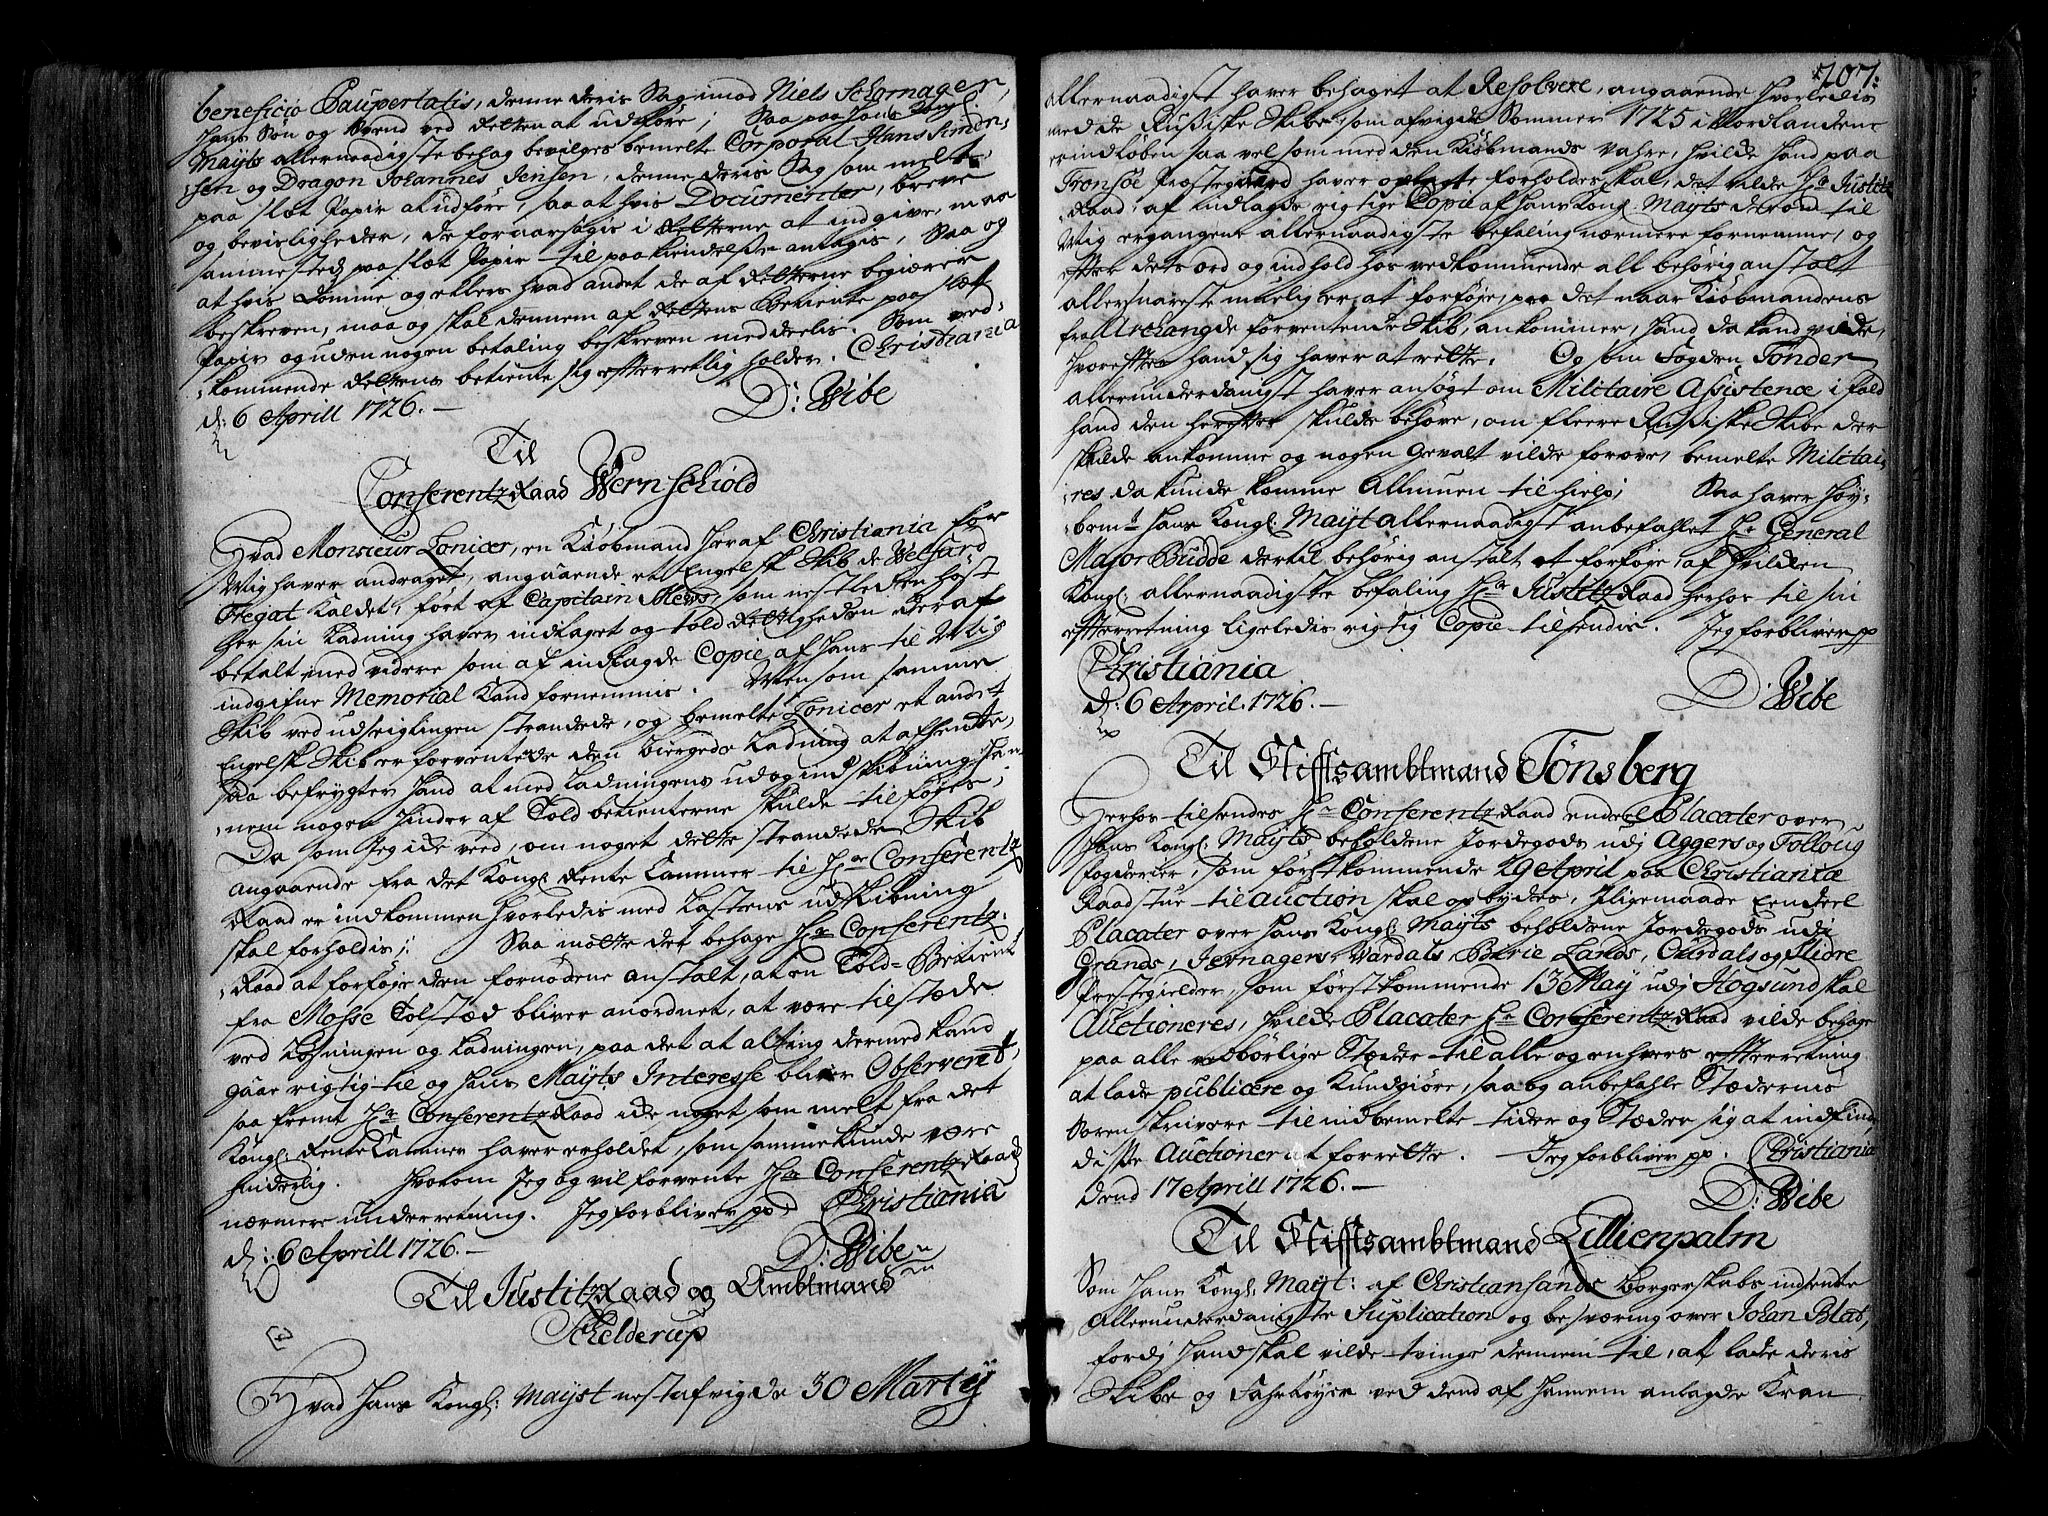 beneficio Paupertatis, denne deris Sag imod Niels Schornagen,
hans Søn og Svend ved Retten at udføre; Saa paa hans Kongl:
Mayts allernaadigste behag bevilges bemelte Corporal Hans Simen-
sen og Dragon Johannes Jensen, denne deris Sag som melt
paa slæt Papir at udføre, saa at hvis Documenter, breve
og bevisligheder, de foraarsagis i Retterne at indgive, maa
sammesteds paa slæt Papir til paakiendelse antagis, Saa og
at hvis Domme og ellers hvad andet de af Retterne begiærer
beskreven, maa og skal dennem af Rettens Betiente paa slæt
Papir og uden nogen betaling beskreven meddeelis. Som ved-
kommende Rettens betiente sig efterretlig holder. Christiania
d: 6 Aprill 1726.
D: Wibe
Til
Conferentz Raad Wernschiold
Hvad Monsieur Lonicer, en Kiøbmand heraf Christiania for
Mig haver andraget, angaaende et Engelsk Skib de
kaldet, ført af Capitain Mews, som nestleden høst
her sin Ladning haver indtaget og told Rettigheden deraf
betalt, med videre som af indlagde Copie af hans til Mig
indgifne Memorial kand fornemmis. Men som samme
Skib ved udseiglingen strandede, og bemelte Lonicer et andet
Engelsk Skib er forventende den biergede Ladning at afhente,
saa befrygter hand at med Ladningens ud og indskibning han-
nem nogen hinder af Told betienterne skulde tilføyes;
Da som Jeg icke veed, om noget dette strandede Skib
angaaende fra det Kongl: Rente Cammer til Hr Conferentz
Raad er indkommen hvorledis med Lastens udskibning
skal forholdis; Saa motte det behage Hr Conferentz
Raad at forføje den fornødene anstalt, at en Told-Betient
fra Mosse Tolsted bliver anordnet, at være tilstæde
ved Losningen og Ladningen, paa det at alting dermed kand
gaae rigtig til og hans Mayts Interesse bliver Observert,
saa fremt Hr Conferentz Raad icke noget som melt fra det
Kongl: Rente Cammer haver erholdet, som samme kunde være
hinderlig. Hvorom Jeg og vil forvente Hr Conferentz Raads
nærmere underretning. Jeg forbliver pp Christiania
d: 6 Aprill 1726.
D: Wibe
Til Justitz Raad og Ambtmand
Schelderup
Hvad Hans Kongl: Mayst nestafvigde 30 Marty
207.
allernaadigst haver behaget at Resolvere, angaaende hvorledis
med de Russiske Skibe som afvigte Sommer 1725 i Nordlandene
er indløben saa vel som med den Kiøbmands vahre, hvilcke hand paa
Tromsøe Prestegaard haver oplagt forholdes skal, det vilde Hr Justitz
Raad, af indlagde rigtige Copie af hans Kongl: Mayts derom til
Mig ergangene allernaadigste befaling nærmere fornemme, og
efter dets ord og indhold hos vedkommende all behørig anstalt
allersnareste muelig er, at forføje, paa det naar Kiøbmandens
fra Archang de forventende Skib, ankommer, hand da kand vide,
hvorefter hand sig haver at rette. Og som Fogden Tønder
allerunderdanigst haver ansøgt om Militaire Assistence i fald
hand den herefter skulde behøve, om fleere Russiske Skibe der
skulde ankomme og nogen Gevalt vilde forøve, bemelte Militai-
res da kunde komme Allmuen til hielp; Saa haver høy-
bemte hans Kongl: Mayt allernaadigst anbefahlet Hr General
Major Budde dertil behørig anstalt at forføje, af hvilcken
Kongl: allernaadigste befaling Hr Justitz Raad herhos til sin
efterretning ligeledis rigtig Copie tilsendis. Jeg forbliver pp
Christiania
d: 6 April. 1726.
D: Wibe
Til Stifftsambtmand Tønsberg
Herhos tilsendes Hr Conferentz Raad endeel Placater over
hans Kongl: Mayts beholdene Jordegods udj Aggers og Folloug
fogderier, som førstkommende 29 April paa Christianiæ
Raadstue til auction skal opbydes, iligemaade Eendeel
Placater over hans Kongl: Mayts beholdene Jordegods udj
Grands, Jevnagers, Vardals, Birie, Lands, Ourdals og Slidre
Prestegielder, som førstkommende 13 May udj Hogsund skal
Auctioneres, hvilcke Placater Hr Conferentz Raad vilde behage
paa alle vedbørlige Stæder til alle og enhvers efterretning
at lade publicere og Kundgiøre, saa og anbefahle Stædernis
Sorenskrivere til indbemelte tider og Stæder sig at indfinde
disse Auctioner at forrette. Jeg forbliver pp. Christiania
dend 17 Aprill 1726.
D: Wibe
Til Stifftsambtmand Lillienpalm
Som Hans Kongl: Mayt: af Christiansands Borgerskabs indsente
Allerunderdanigste Suplication og besværing over Johan Blat,
fordj hand skal vilde tvinge dennem til, at lade deris
Skibe og Fahrtøyer ved dend af hannem anlagde Kran